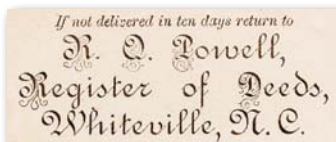 If not delivered in ten days return to
R. Q. Powell,
Register of Deeds,
Whiteville, N. C.